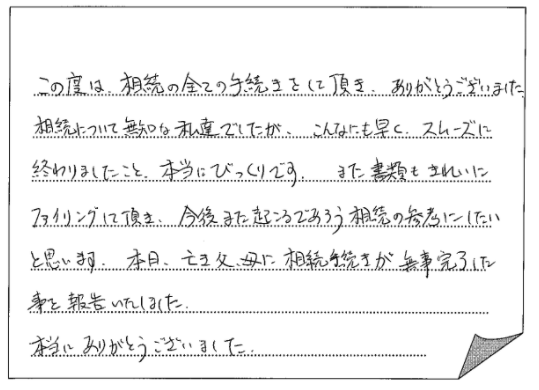 この度は、相続の全ての手続きをして頂き、ありがとうございました。
相続について無知な私達でしたが、こんなにも早く、スムーズに
終わりましたこと、本当にびっくりです。 また書類もきれいに
ファイリングして頂き、今後また起こるであろう相続の参考にしたい
と思います。 本日、亡き父、母に相続手続きが無事完了した
事を報告いたしました。
本当にありがとうございました。